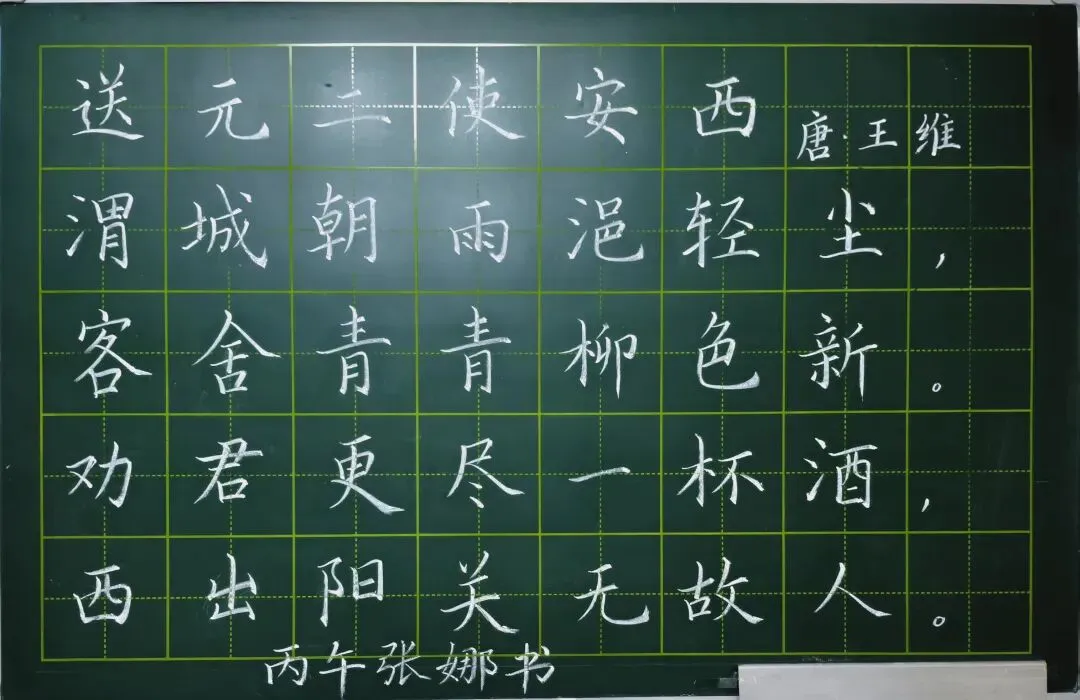 送元二使安西 唐·王维
渭城朝雨浥轻尘，
客舍青青柳色新。
劝君更尽一杯酒，
西出阳关无故人。
丙午张娜书